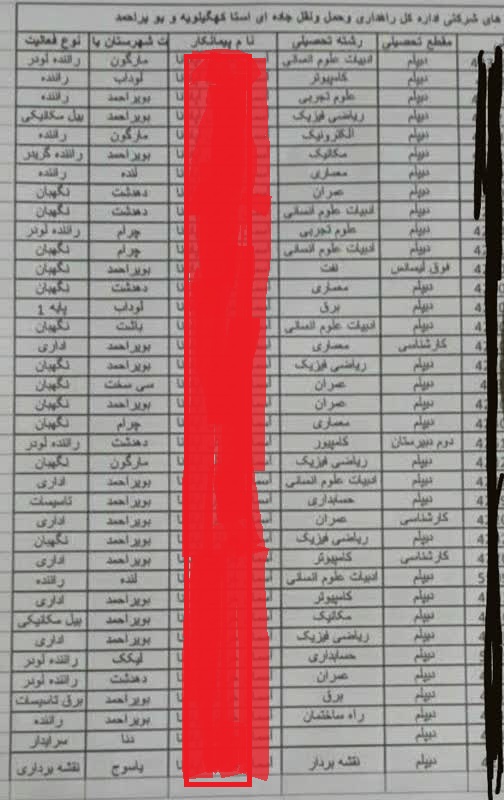 های شرکتی اداره کل راهداری وحمل ونقل جاده ای استا کهگیلویه و بو یراحمد
مقطع تحصیلی رشته تحصیلی نا م پیمانکار ت شهرستان یا نوع فعالیت
دیپلم ادبیات علوم انسانی مارگون راننده لودر
دیپلم کامپیوتر لوداب راننده
دیپلم علوم تجربی بویراحمد راننده
دیپلم ریاضی فیزیک بویراحمد بیل مکانیکی
دیپلم الکترونیک مارگون راننده
دیپلم مکانیک بویراحمد راننده گریدر
دیپلم معماری لنده راننده
دیپلم عمران دهدشت نگهبان
دیپلم ادبیات علوم انسانی دهدشت نگهبان
دیپلم علوم تجربی چرام راننده لودر
دیپلم ادبیات علوم انسانی چرام نگهبان
فوق لیسانس نفت بویراحمد نگهبان
دیپلم معماری دهدشت نگهبان
دیپلم برق لوداب پایه 1
دیپلم ادبیات علوم انسانی باشت نگهبان
کارشناسی معماری بویراحمد اداری
دیپلم ریاضی فیزیک بویراحمد نگهبان
دیپلم عمران سی سخت نگهبان
دیپلم عمران بویراحمد نگهبان
دیپلم معماری چرام نگهبان
دوم دبیرستان کامپیور دهدشت راننده لودر
دیپلم ریاضی فیزیک مارگون نگهبان
دیپلم ادبیات علوم انسانی بویراحمد اداری
دیپلم حسابداری بویراحمد تاسیسات
کارشناسی عمران بویراحمد اداری
دیپلم ریاضی فیزیک بویراحمد نگهبان
کارشناسی کامپیوتر بویراحمد اداری
دیپلم ادبیات علوم انسانی لنده راننده
دیپلم کامپیوتر بویراحمد اداری
دیپلم مکانیک بویراحمد بیل مکانیکی
دیپلم ریاضی فیزیک بویراحمد اداری
دیپلم حسابداری لیکک راننده لودر
دیپلم عمران دهدشت راننده لودر
دیپلم برق بویراحمد برق تاسیسات
دیپلم راه ساختمان بویراحمد راننده
دیپلم دنا سرایدار
دیپلم نقشه بردار یاسوج نقشه برداری